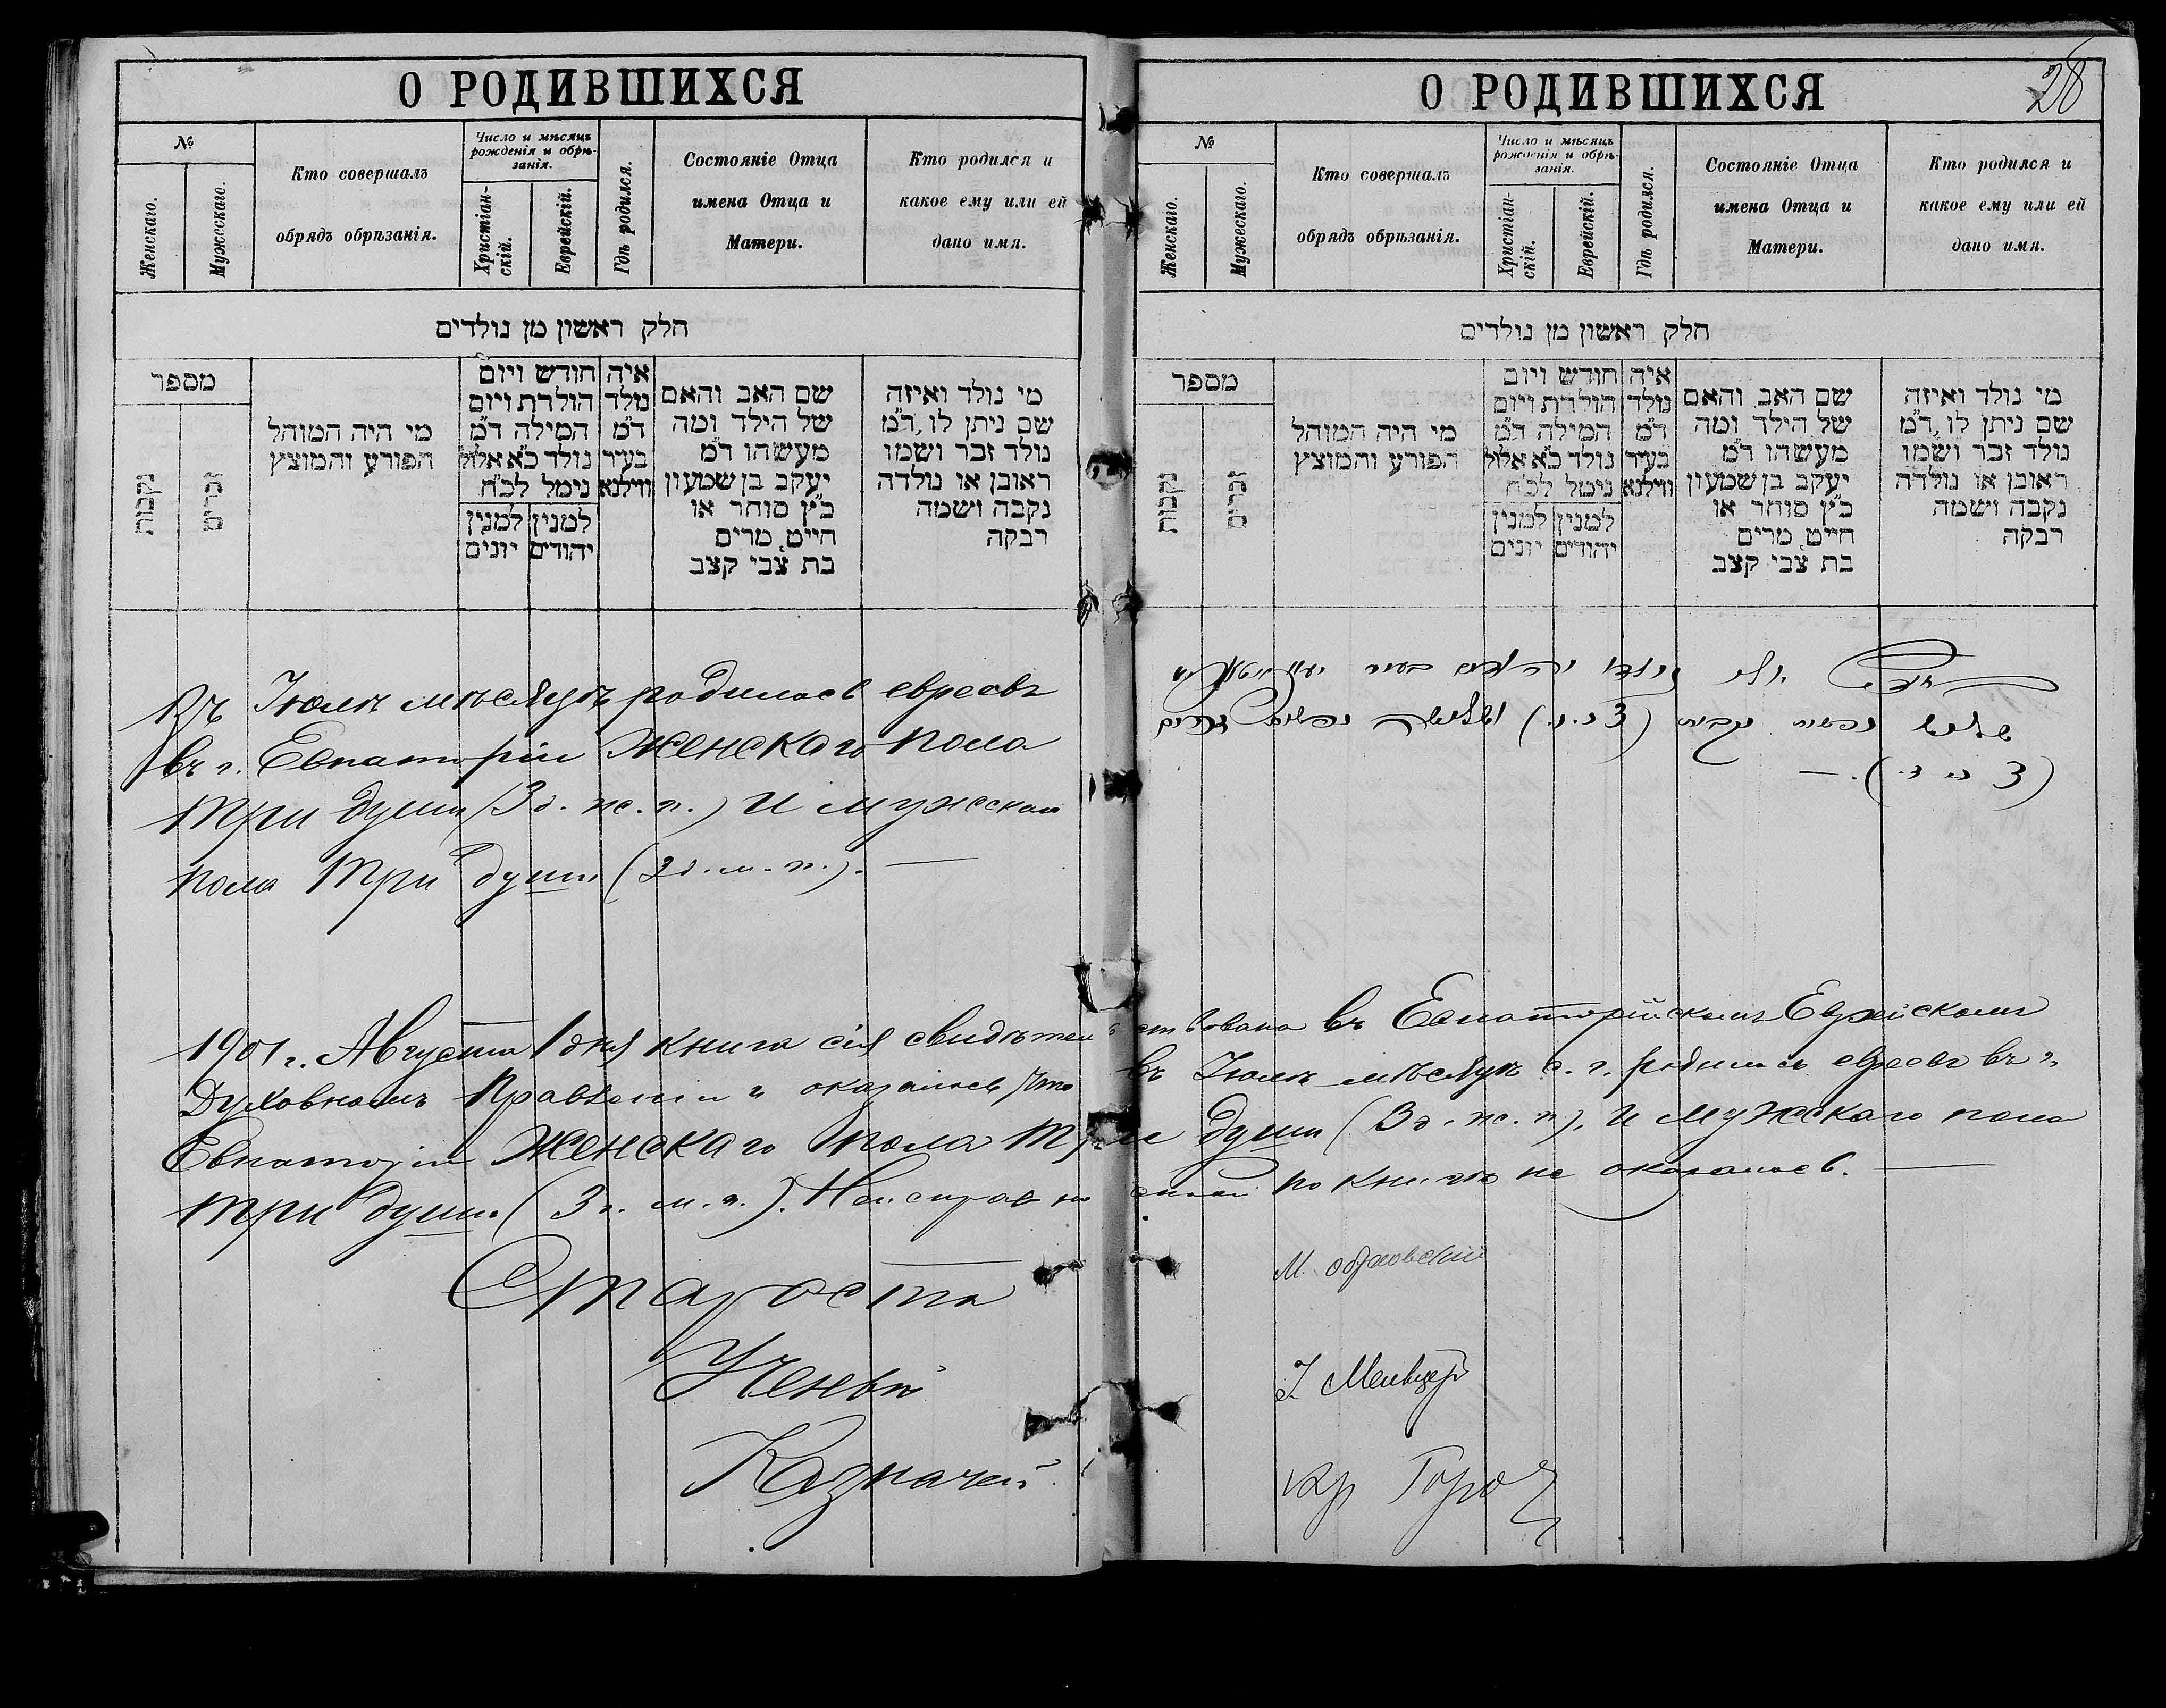 О РОДИВШИХСЯ
№
Женскаго.
Мужескаго.
Кто совершалъ
обрядъ обрѣзанія.
Число и мѣсяцъ
рожденія и обрѣ-
занія.
Христіан-
скій.
Еврейскій.
Гдѣ родился.
Состояніе Отца
имена Отца и
Матери.
Кто родился и
какое ему или ей
дано имя.
חלק ראשון מן נולדים
מספר
נקבות
זכרים
מי היה המוהל
הפורע והמוצץ
חודש ויום
הולדת ויום
המילה ד״מ
נולד כ״א אלול
נימל לכ״ח
למנין יהודים
למנין יונים
איה
נולד
ד״מ
בעיר
ווילנא
שם האב והאם
של הילד ומה
מעשהו ד״מ
יעקב בן שמעון
כ״ץ סוחר או
חייט, מרים
בת צבי קצב
מי נולד ואיזה
שם ניתן לו, ד״מ
נולד זכר ושמו
ראובן או נולדה
נקבה ושמה
רבקה
Въ Іюлѣ мѣсяцѣ родилось евреевъ
въ г. Евпаторіи женскаго пола
три души (3 д. ж. п.) и мужескаго
пола три души (3 д. м. п.). —
О РОДИВШИХСЯ
28
№
Женскаго.
Мужескаго.
Кто совершалъ
обрядъ обрѣзанія.
Число и мѣсяцъ
рожденія и обрѣ-
занія.
Христіан-
скій.
Еврейскій.
Гдѣ родился.
Состояніе Отца
имена Отца и
Матери.
Кто родился и
какое ему или ей
дано имя.
חלק ראשון מן נולדים
מספר
נקבות
זכרים
מי היה המוהל
הפורע והמוצץ
חודש ויום
הולדת ויום
המילה ד״מ
נולד כ״א אלול
נימל לכ״ח
למנין יהודים
למנין יונים
איה
נולד
ד״מ
בעיר
ווילנא
שם האב והאם
של הילד ומה
מעשהו ד״מ
יעקב בן שמעון
כ״ץ סוחר או
חייט, מרים
בת צבי קצב
מי נולד ואיזה
שם ניתן לו, ד״מ
נולד זכר ושמו
ראובן או נולדה
נקבה ושמה
רבקה
יולי נולדו בעיר
שלוש נפשות נקבות (3 נ. נ.) ושלושה נפשות זכרים
(3 נ. ז.). —
1901 г. Августа 1 дня книга сія свидѣтельствована въ Евпаторійскомъ Еврейскомъ
Духовномъ Правленіи и оказалось что въ Іюлѣ мѣсяцѣ с. г. родилось евреевъ въ г.
Евпаторіи женскаго пола три души (3 д. ж. п.), и мужскаго пола
три души (3 д. м. п.). Неисправностей по книгѣ не оказалось. —
Староста
Ученый
І. Менцеръ
Казначей